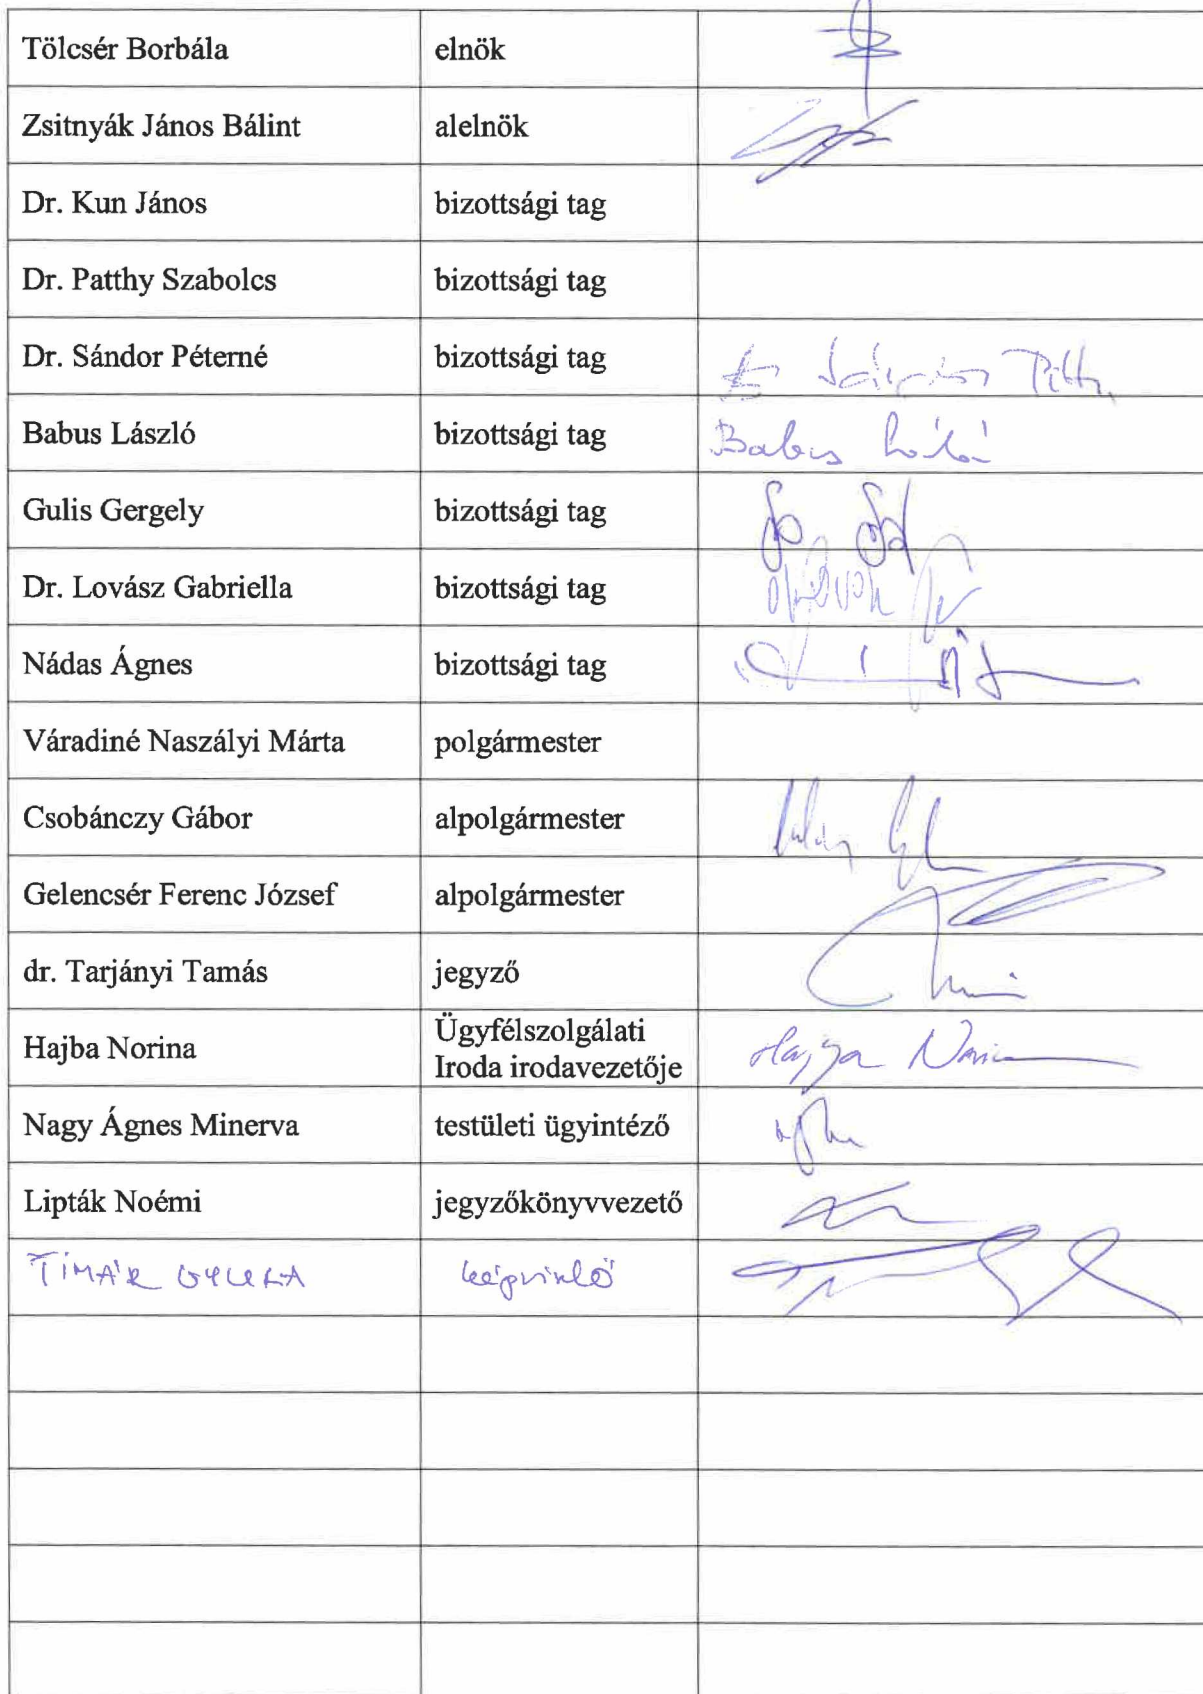 Tölcsér Borbála elnök
Zsitnyák János Bálint alelnök
Dr. Kun János bizottsági tag
Dr. Patthy Szabolcs bizottsági tag
Dr. Sándor Péterné bizottsági tag
Babus László bizottsági tag Babus
Gulis Gergely bizottsági tag
Dr. Lovász Gabriella bizottsági tag
Nádas Ágnes bizottsági tag
Váradiné Naszályi Márta polgármester
Csobánczy Gábor alpolgármester
Gelencsér Ferenc József alpolgármester
dr. Tarjányi Tamás jegyző
Hajba Norina Ügyfélszolgálati
Iroda irodavezetője
Nagy Ágnes Minerva testületi ügyintéző
Lipták Noémi jegyzőkönyvvezető
TIMÁR GYULA képviselő